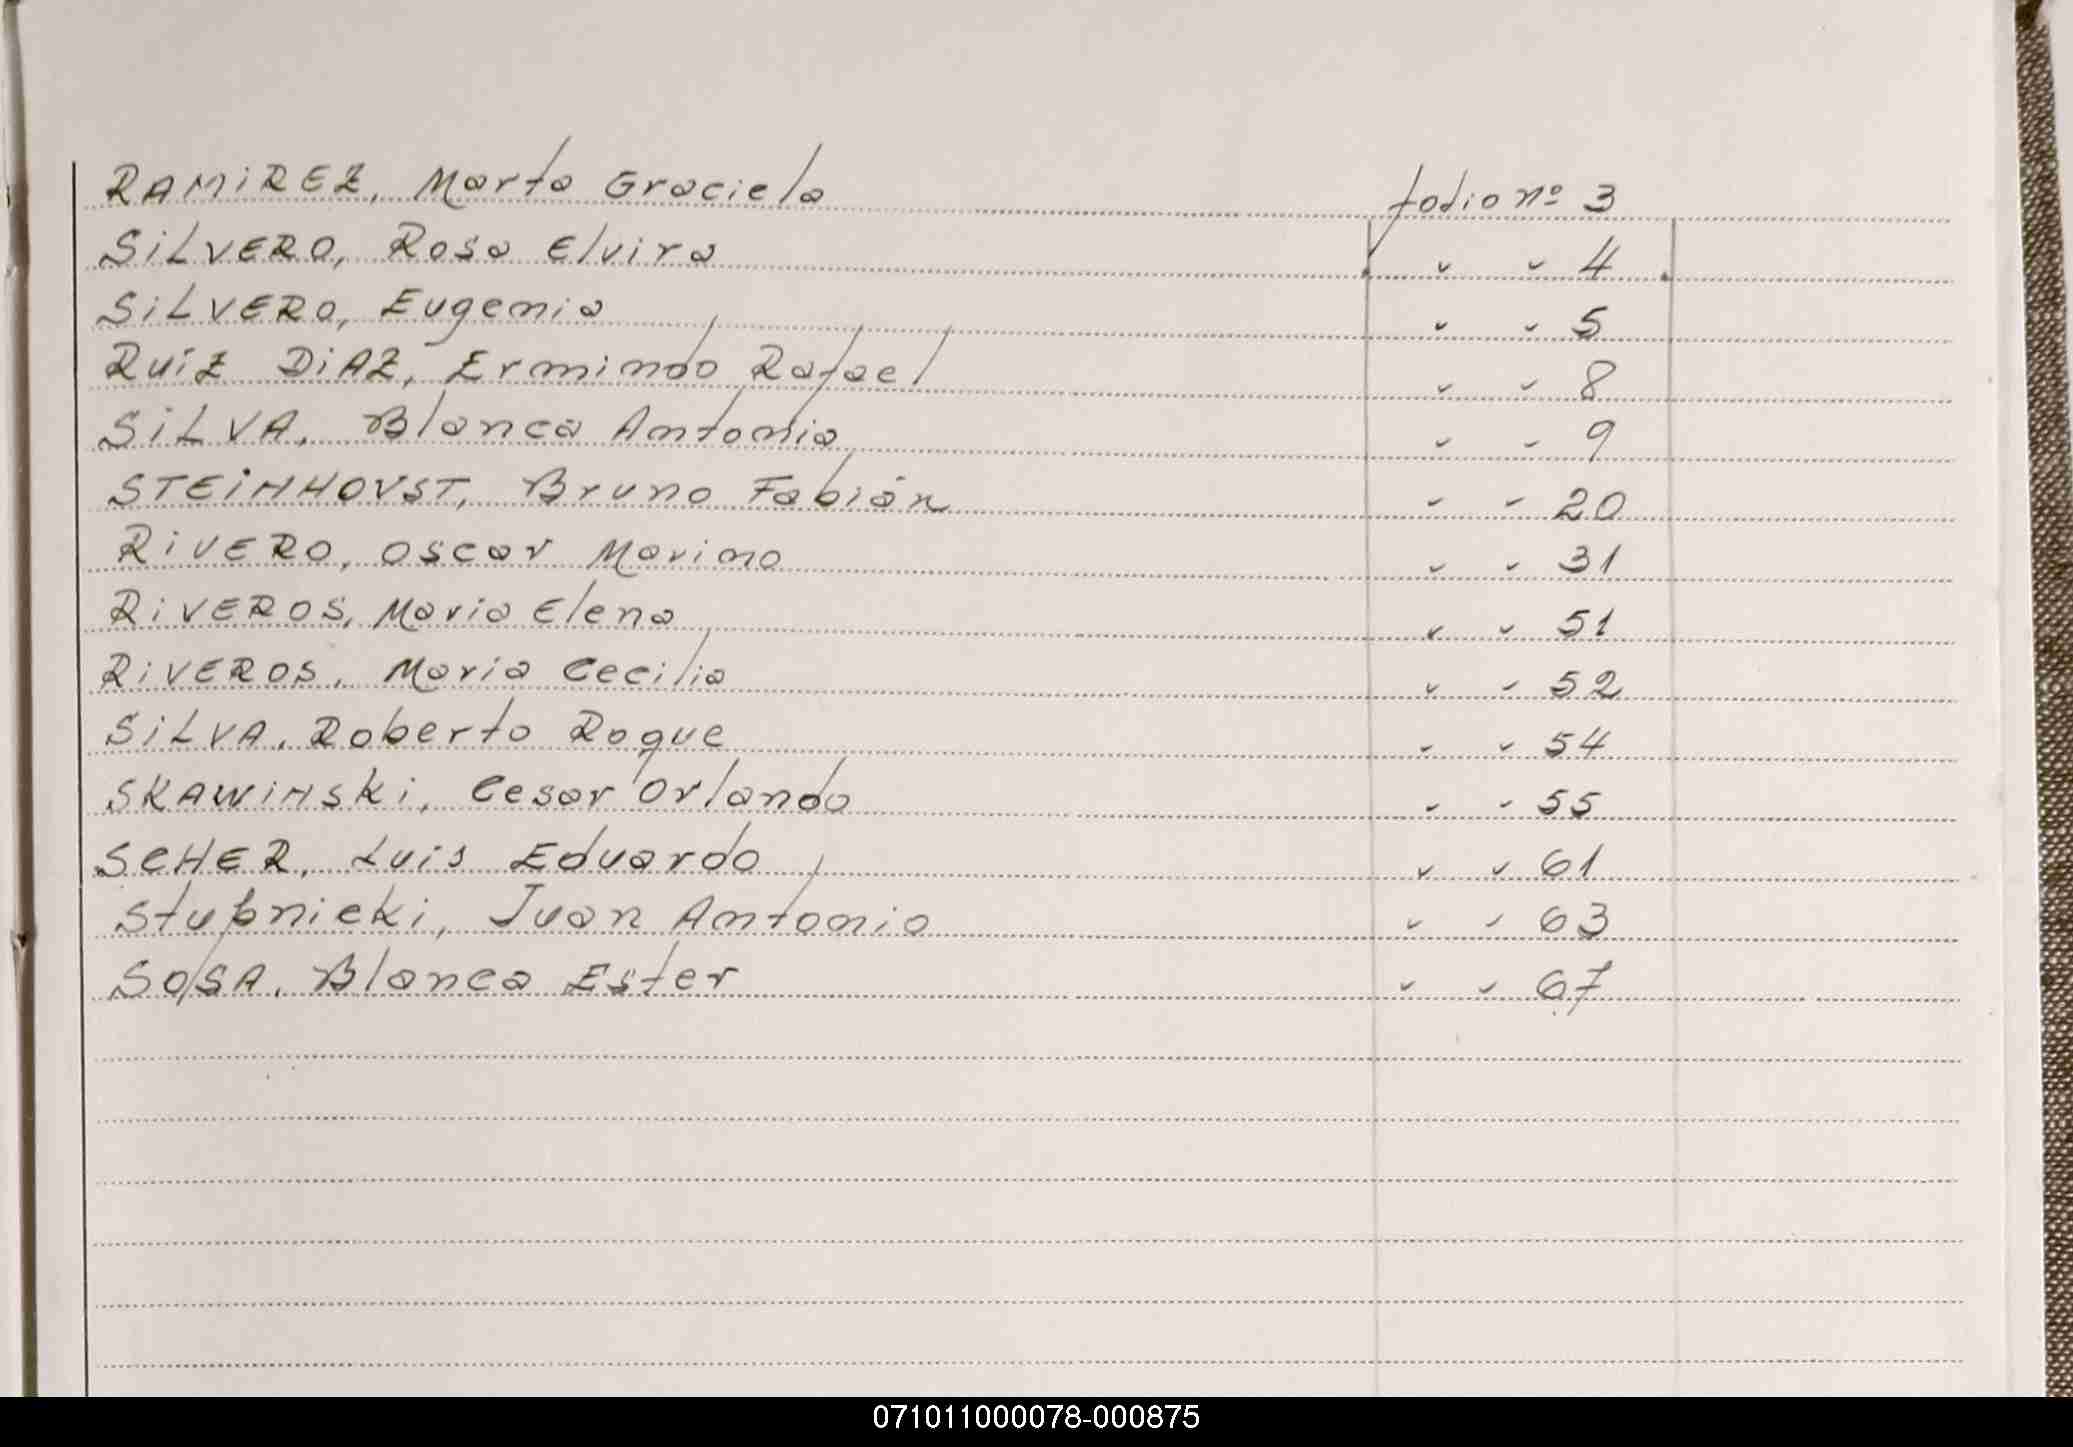 RAMIREZ, Marta Graciela folio nº 3
SILVERO, Rosa Elvira " " 4
SILVERO, Eugenia " " 5
RUIZ DIAZ, Ermindo Rafael " " 8
SILVA, Blanca Antonia " " 9
STEINHOVST, Bruno Fabián " " 20
RIVERO, Oscar Marino " " 31
RIVEROS, Maria Elena " " 51
RIVEROS, Maria Cecilia " " 52
SILVA, Roberto Roque " " 54
SKAWINSKi, Cesar Orlando " " 55
SCHER, Luis Eduardo " " 61
Stupnicki, Juan Antonio " " 63
SOSA, Blanca Ester " " 67
071011000078-000875